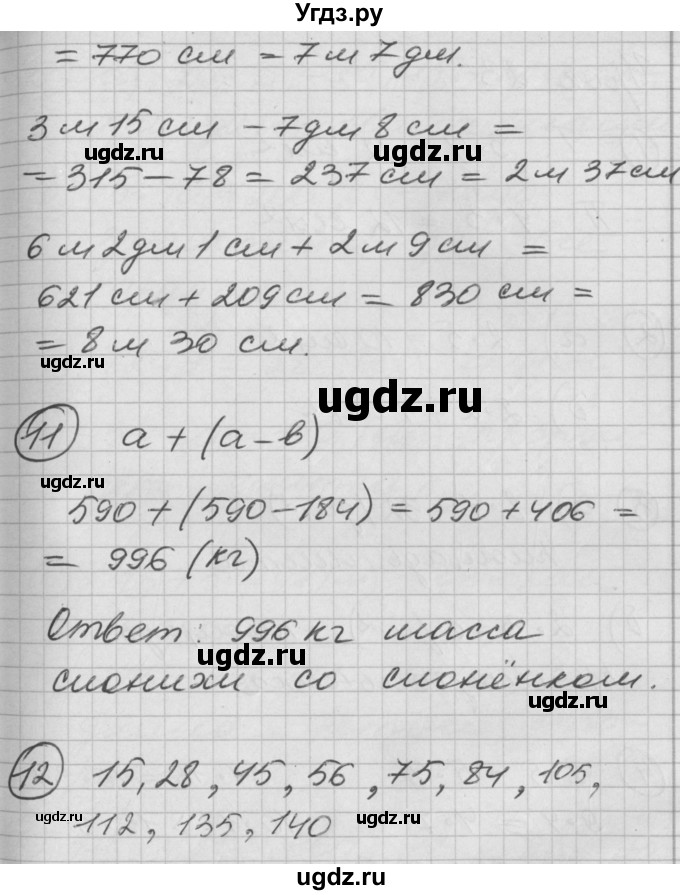 Угдз.ру
= 770 см = 7 м 7 дм.
3 м 15 см - 7 дм 8 см =
ugdz.ru ugdz.ru
= 315 - 78 = 237 см = 2 м 37 см
6 м 2 дм 1 см + 2 м 9 см =
621 см + 209 см = 830 см =
= 8 м 30 см.
ugdz.ru
ugdz.ru
11 а + (а - в)
ugdz.ru
590 + (590 - 184) = 590 + 406 =
ugdz.ru
= 996 (кг)
Ответ: 996 кг масса
ugdz.ru
слонихи со слонёнком.
ugdz.ru
12 15, 28, 45, 56, 75, 84, 105,
ugdz.ru ugdz.ru
112, 135, 140
ugdz.ru